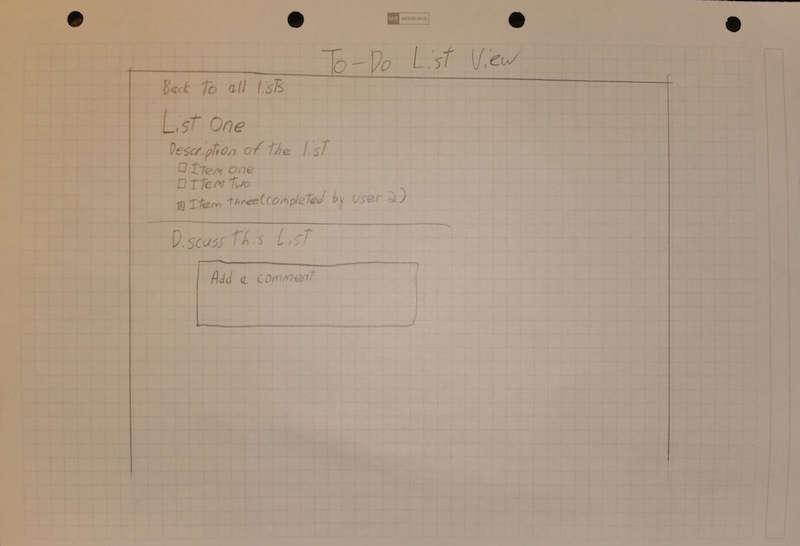 To-Do List View
Back to all lists
List One
Description of the list
Item one
Item Two
Item three(completed by user 2)
Discuss this List
Add a comment